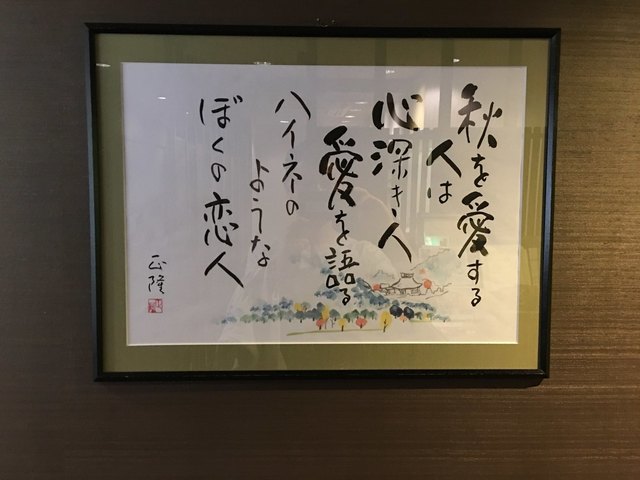 秋を愛する
人は
心深き人
愛を語る
ハイネの
ようなな
ぼくの恋人
正隆